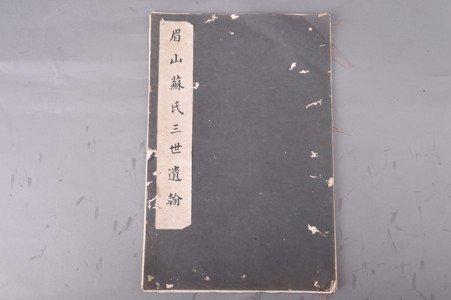 眉山蘇氏三世遺翰